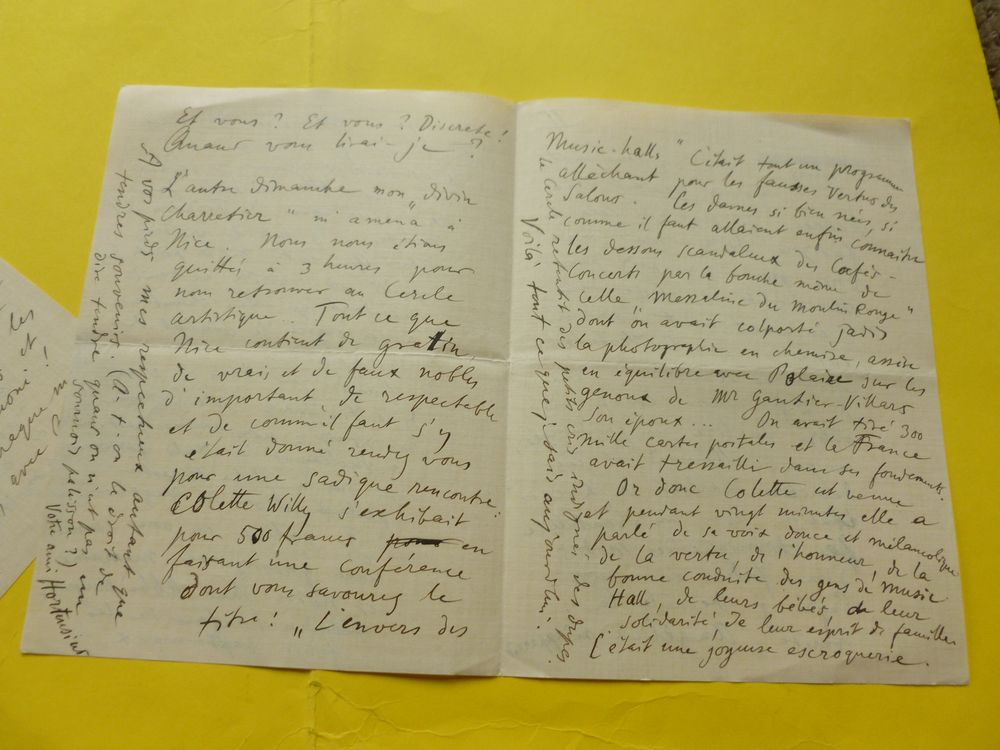 Et vous ? Et vous ? Discrète !
Quand vous lirai-je ?
L'autre dimanche mon „ divin
charretier " m'amena à
Nice. Nous nous étions
quittés à 3 heures pour
nous retrouver au Cercle
artistique.. Tout ce que
Nice contient de gratin,
de vrais et de faux nobles
d'important, de respectable
et de comm-il faut s'y
était donné rendez vous
pour une sadique rencontre.
Colette Willy s'exhibait
pour 500 francs en
faisant une conférence
dont vous savourez le
titre : „ L'envers des
Music-halls " C'était tout un programme
alléchant pour les fausses vertus des
Salons. Les dames si bien nées, si
comme il faut allaient enfin connaître
les dessous scandaleux des Cafés-
Concerts par la bouche même de
celle „ Messaline du Moulin Rouge "
dont on avait colporté jadis
la photographie en chemise, assise
en équilibre avec Polaire sur les
genoux de Mr Gautier-Villars
son époux... On avait tiré 300
mille cartes postales et la France
avait tressailli dans ses fondements.
Or donc Colette est venue
et pendant vingt minutes elle a
parlé de sa voix douce et mélancolique
de la vertu, de l'honneur, de la
bonne conduite des gens de Music
Hall, de leurs bébés, de leur
solidarité, de leur esprit de famille
C'était une joyeuse escroquerie.
le Cercle retentit des petits cris indignés des dupes.
Voilà tout ce que je sais aujourd'hui.
A vos pieds mes respectueux autant que
tendres souvenirs. (A-t-on le droit de
dire tendre quand on n'est pas un
sournois polisson ?)
Votre ami Hortensius
les
et
avec